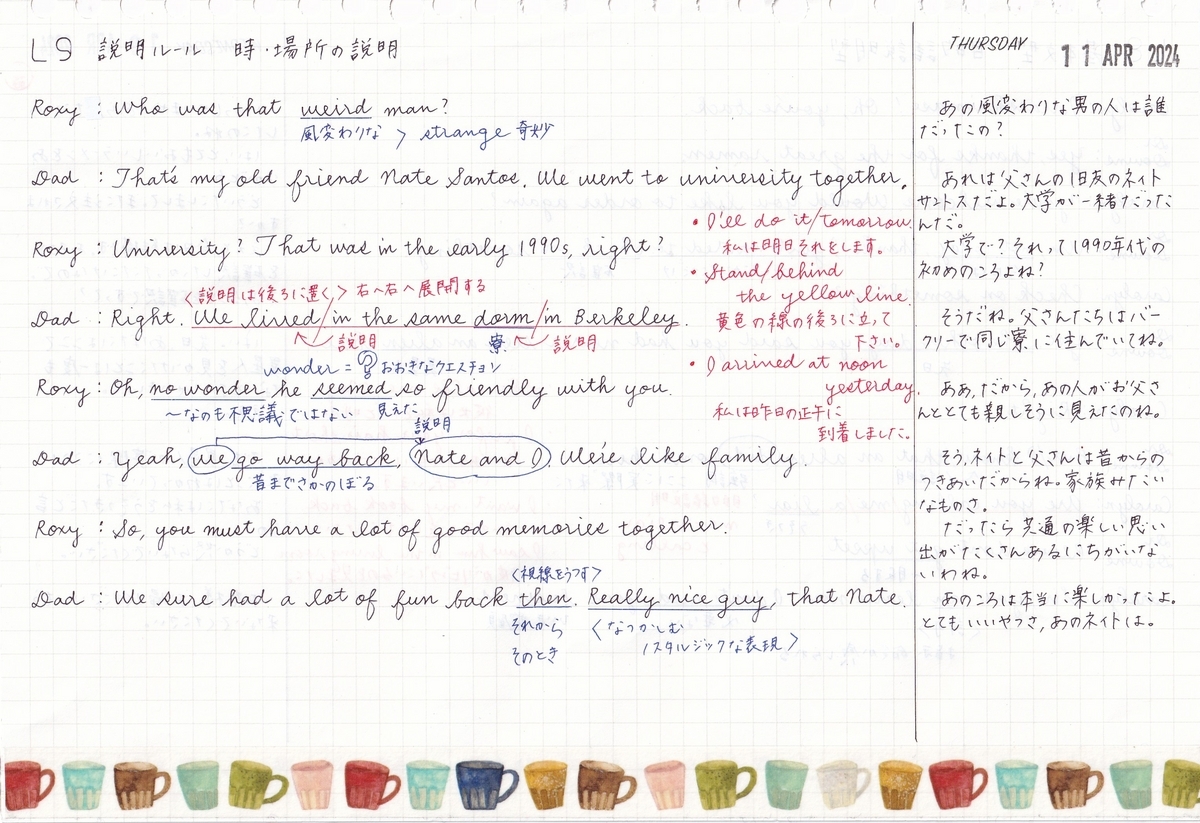 L9 説明ルール 時・場所の説明
THURSDAY 11 APR 2024
Roxy : Who was that weird man?
風変わりな > strange 奇妙
Dad : That's my old friend Nate Santos. We went to university together.
Roxy : University? That was in the early 1990s, right?
〈説明は後ろに置く〉右へ右へ展開する
Dad : Right. We lived/in the same dorm/in Berkeley.
説明 寮 説明
wonder = ? おおきなクエスチョン
Roxy : Oh, no wonder he seemed so friendly with you.
〜なのも不思議ではない 見えた
説明
Dad : Yeah, we go way back, Nate and I. We're like family.
昔までさかのぼる
Roxy : So, you must have a lot of good memories together.
〈視線をうつす〉
Dad : We sure had a lot of fun back then. Really nice guy, that Nate.
それから 〈なつかしむ
そのとき ノスタルジックな表現〉
• I'll do it/tomorrow.
私は明日それをします。
• Stand/behind
the yellow line.
黄色の線の後ろに立って
下さい。
• I arrived at noon
yesterday.
私は昨日の正午に
到着しました。
あの風変わりな男の人は誰
だったの?
あれは父さんの旧友のネイト
サントスだよ。大学が一緒だった
んだ。
大学で?それって1990年代の
初めのころよね?
そうだね。父さんたちはバー
クリーで同じ寮に住んでいてね。
ああ,だから,あの人がお父さ
んととても親しそうに見えたのね。
そう,ネイトと父さんは昔からの
つきあいだからね。家族みたい
なものさ。
だったら共通の楽しい思い
出がたくさんあるにちがいな
いわね。
あのころは本当に楽しかったよ。
とてもいいやつさ,あのネイトは。